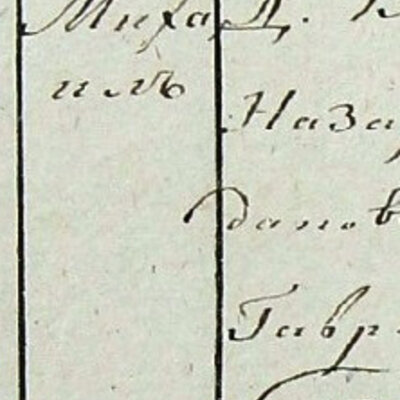 Миха
илъ
Д.
Наза
данов
Гавр